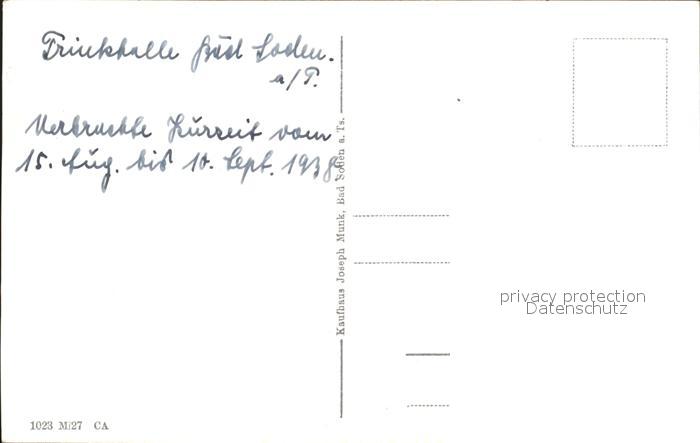 Trinkhalle Bad Soden.
a/T.
Verbrachte Kurzeit vom
15. Aug. bis 10. Sept. 1938.
Kaufhaus Joseph Munk, Bad Soden a. Ts.
privacy protection
Datenschutz
1023 M/27 CA